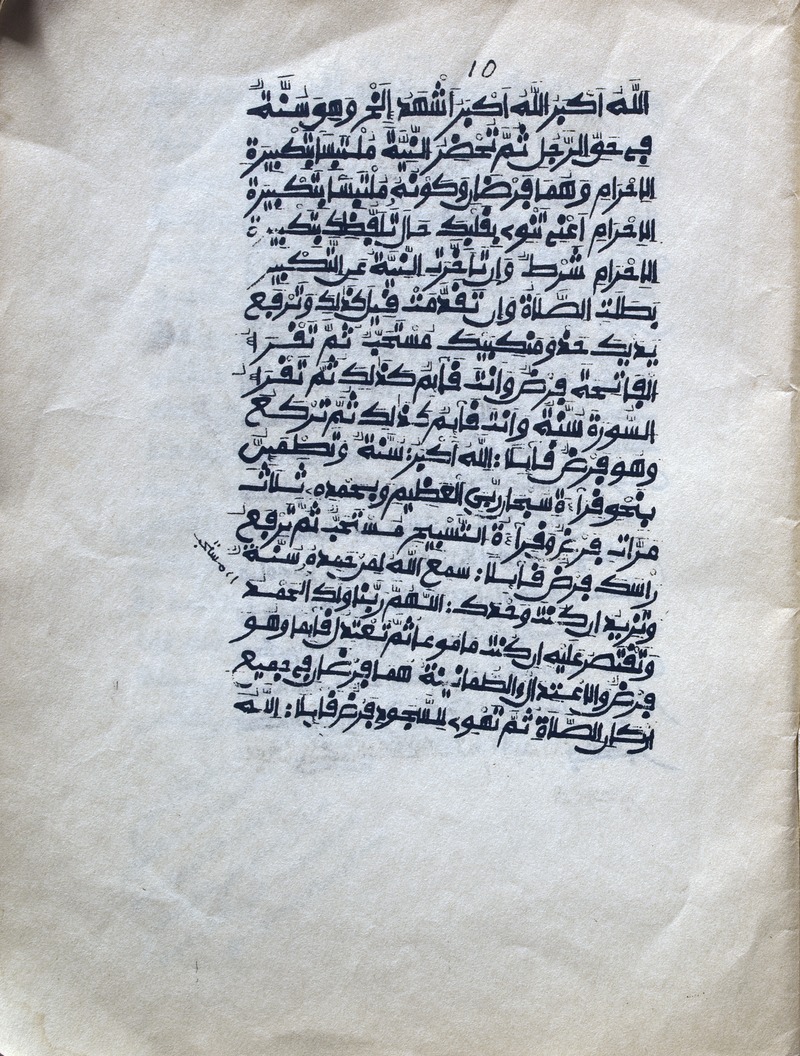 10
الله اكبر الله اكبر اشهد إلخ وهو سنة
في حق الرجل ثم تحضر النية ملتبسا بتكبيرة
الاحرام وهما فرضان وكونه ملتبسا بتكبيرة
الاحرام اعني تنوي بقلبك حال تلفظك بتكبيرة
الاحرام شرط وان تاخرت النية عن التكبير
بطلت الصلاة وان تقدمت فبل كذلك وترفع
يديك حذو منكبيك مستحب ثم تقرا
الفاتحة فرض وانت قايم كذلك ثم تقرا
السورة سنة وانت قايم كذلك ثم تركع
وهو فرض قايلا: الله اكبر: سنة وتطمين
بنحو قراءة سبحان ربي العظيم وبحمده ثلاث
مرات فرض وقراءة التسبيح مستحب ثم ترفع
راسك فرض قايلا: سمع الله لمن حمده سنة
وتزيد ان كنت وحدك: اللهم ربنا ولك الحمد
وتقتصر عليه ان كنت ماموما ثم تعتدل قايما وهو
فرض والاعتدال والطمانينة هما فرضان في جميع
اركان الصلاة ثم تهوي للسجود فرض قايلا: الله